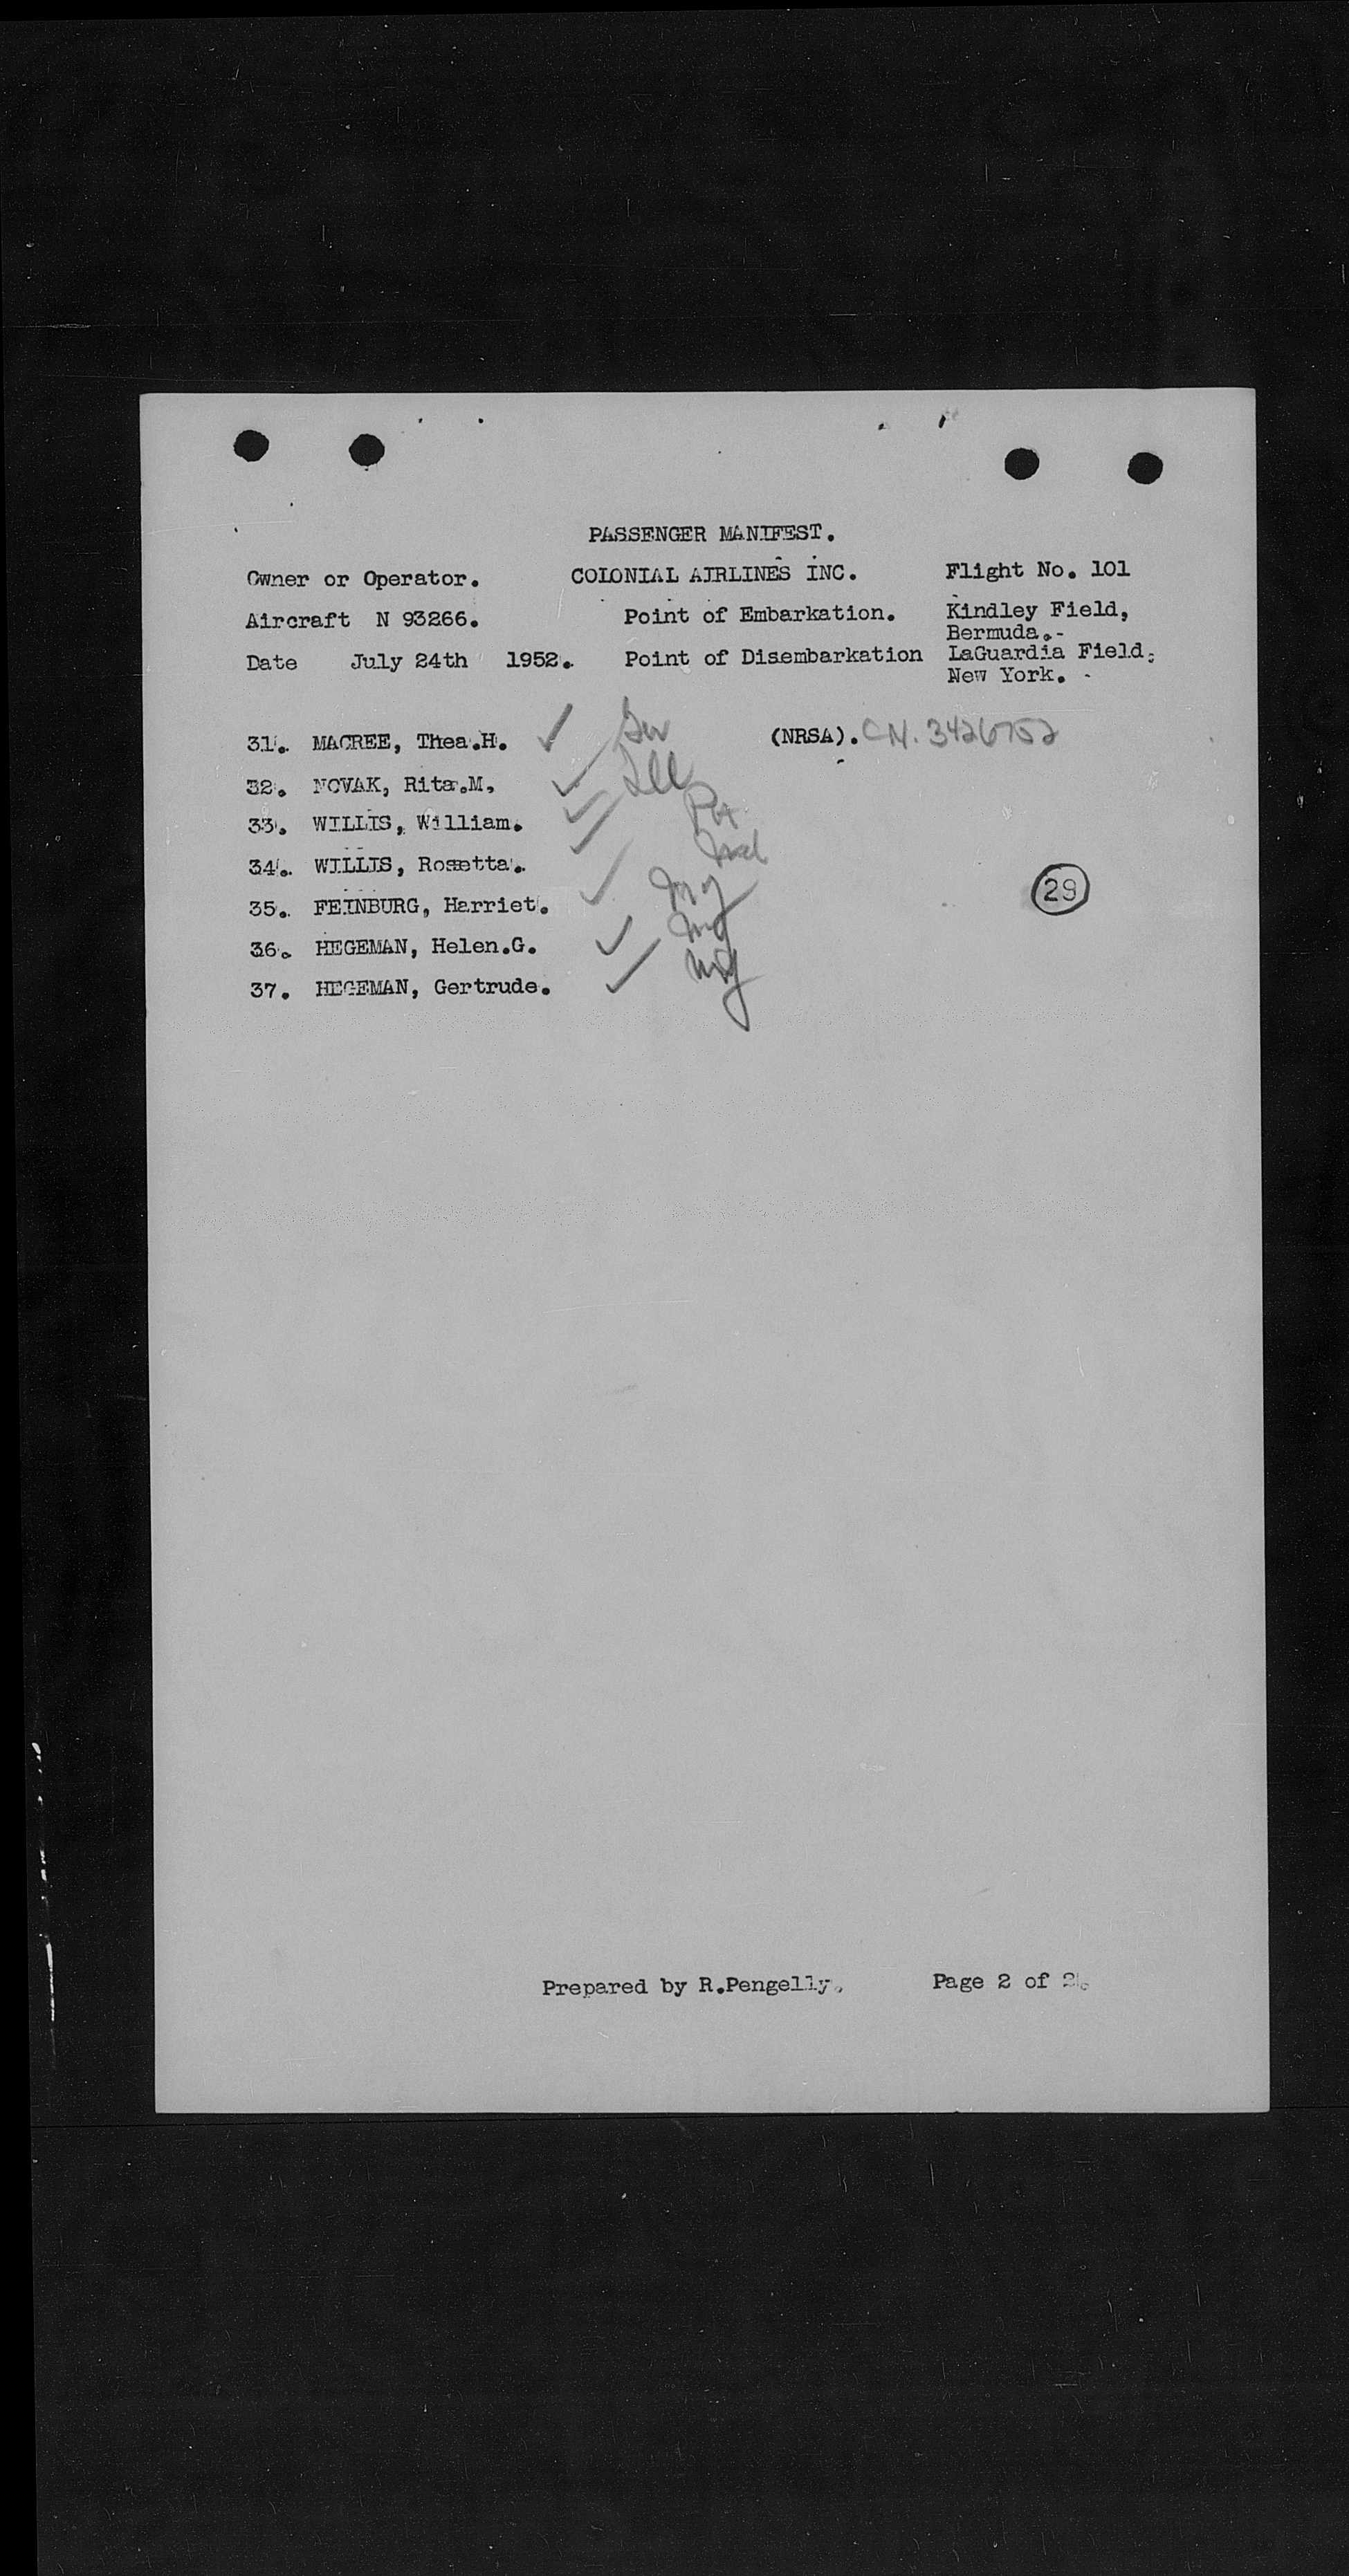 PASSENGER MANIFEST.
Owner or Operator. COLONIAL AIRLINES INC. Flight No. 101
Aircraft N 93266. Point of Embarkation. Kindley Field,
Bermuda.-
Date July 24th 1952. Point of Disembarkation LaGuardia Field,
New York. -
31. MACREE, Thea.H. (NRSA). CN. 3426752
32. NOVAK, Rita.M. Ill
33. WILLIS, William. Pa
34. WILLIS, Rosetta. Md
35. FEINBURG, Harriet. NY
29
36. HEGEMAN, Helen.G. NY
37. HEGEMAN, Gertrude. NY
Prepared by R.Pengelly. Page 2 of 2.